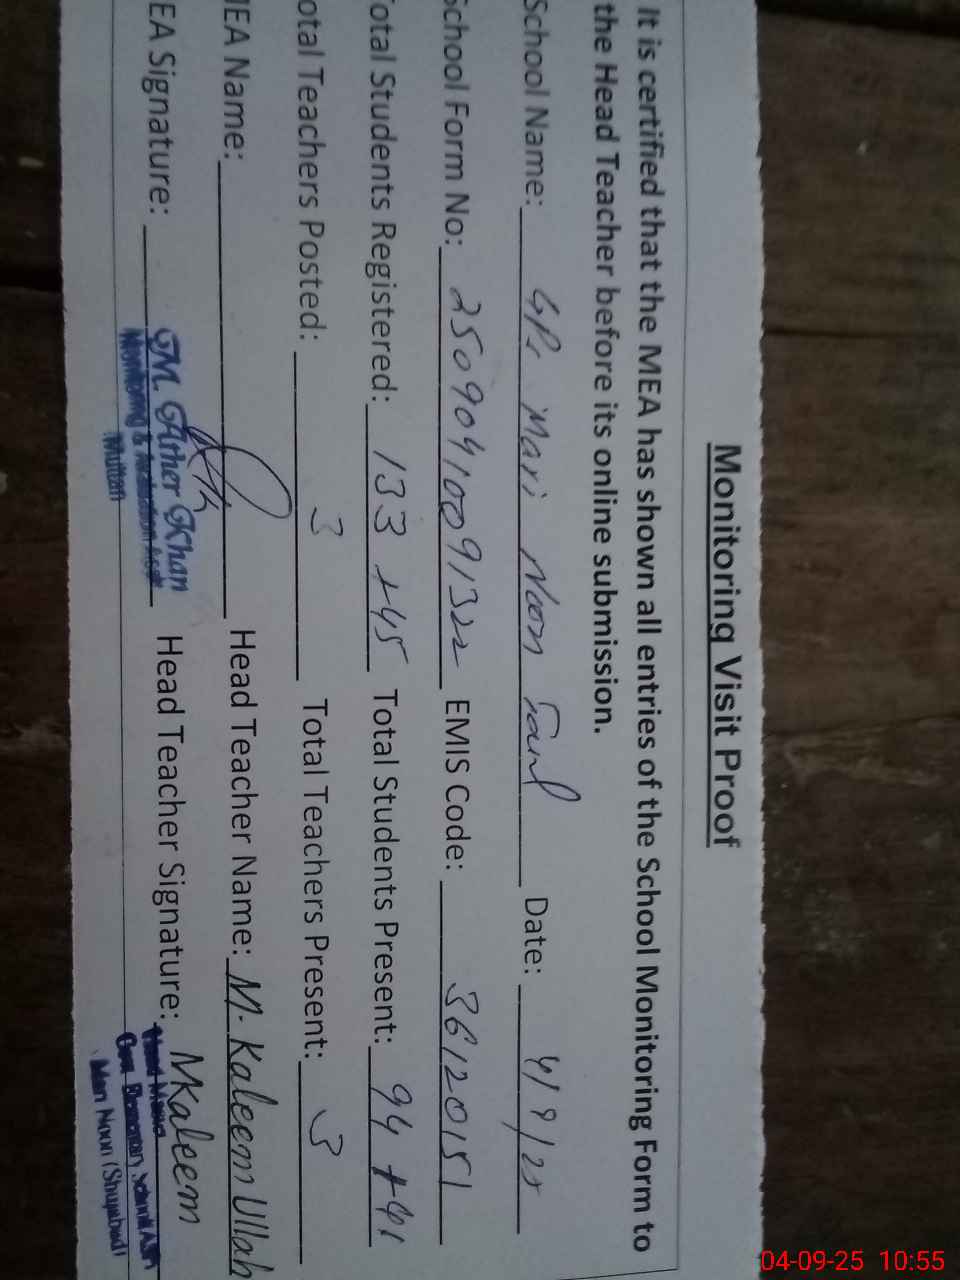 Monitoring Visit Proof
It is certified that the MEA has shown all entries of the School Monitoring Form to
the Head Teacher before its online submission.
School Name: GPS Mari Noon Date: 4/9/25
School Form No: 25090410091322 EMIS Code: 36120151
Total Students Registered: 133 +45 Total Students Present: 94 +41
otal Teachers Posted: 3 Total Teachers Present: 3
MEA Name: Head Teacher Name: M. Kaleem Ullah
EA Signature: M. Ather Khan Head Teacher Signature: MKaleem
Monitoring &
Multan
Mari Noon (Shujabad)
04-09-25 10:55